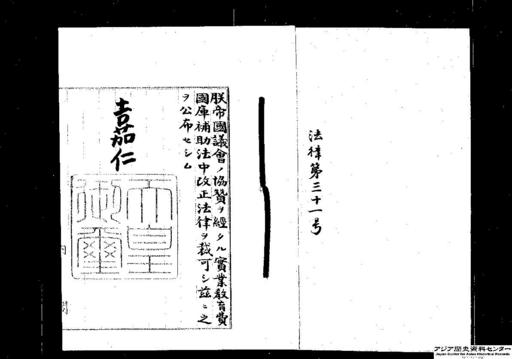 法律第三十一号
朕帝國議會ノ協贊ヲ經タル實業教育費
國庫補助法中改正法律ヲ裁可シ茲ニ之
ヲ公布セシム
嘉仁
天皇
御璽
内閣
アジア歴史資料センター
Japan Center for Asian Historical Records